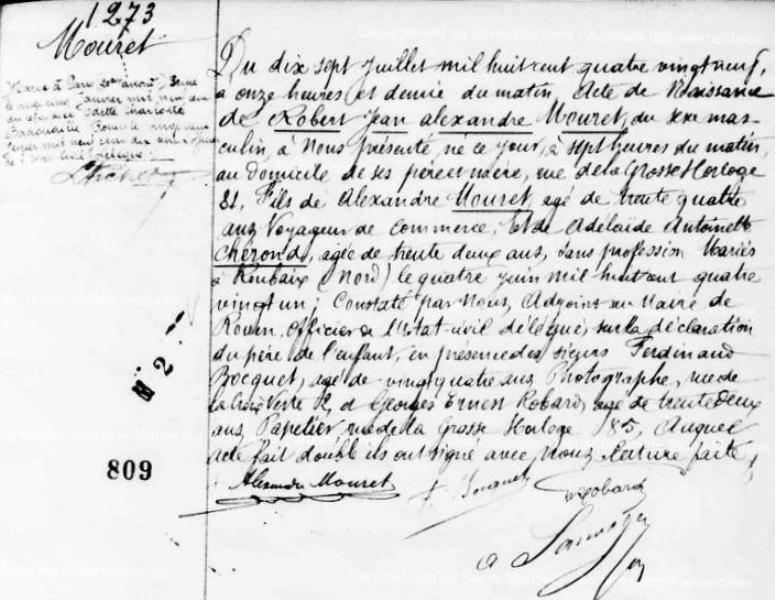 1273
Mouret
Marié à Paris
Du dix sept Juillet mil huit cent quatre vingt neuf,
à onze heures et demie du matin, Acte de Naissance
de Robert Jean Alexandre Mouret, du sexe mas-
culin, à Nous présenté, né ce jour, à sept heures du matin,
au domicile de ses père et mère, rue de la Grosse Horloge
81, Fils de Alexandre Mouret, agé de trente quatre
ans, Voyageur de Commerce, Et de Adélaïde Antoinette
Chérond, agée de trente deux ans, sans profession Mariés
à Roubaix (Nord) le quatre Juin mil huit cent quatre
vingt un; Constaté par Nous, Adjoint au Maire de
Rouen, Officier de l'Etat civil délégué, sur la déclaration
du père de l'enfant, en présence des sieurs Ferdinand
Bocquet, agé de vingt quatre ans Photographe, rue de
la Croix Verte et Georges Ernest Robard, agé de trente deux
ans Papetier, rue de la Grosse Horloge 185, Auquel
acte fait double ils ont signé avec Nous lecture faite,
Alexandre Mouret
Robard
N 2
809
Département de Seine-Maritime - Archives départementales